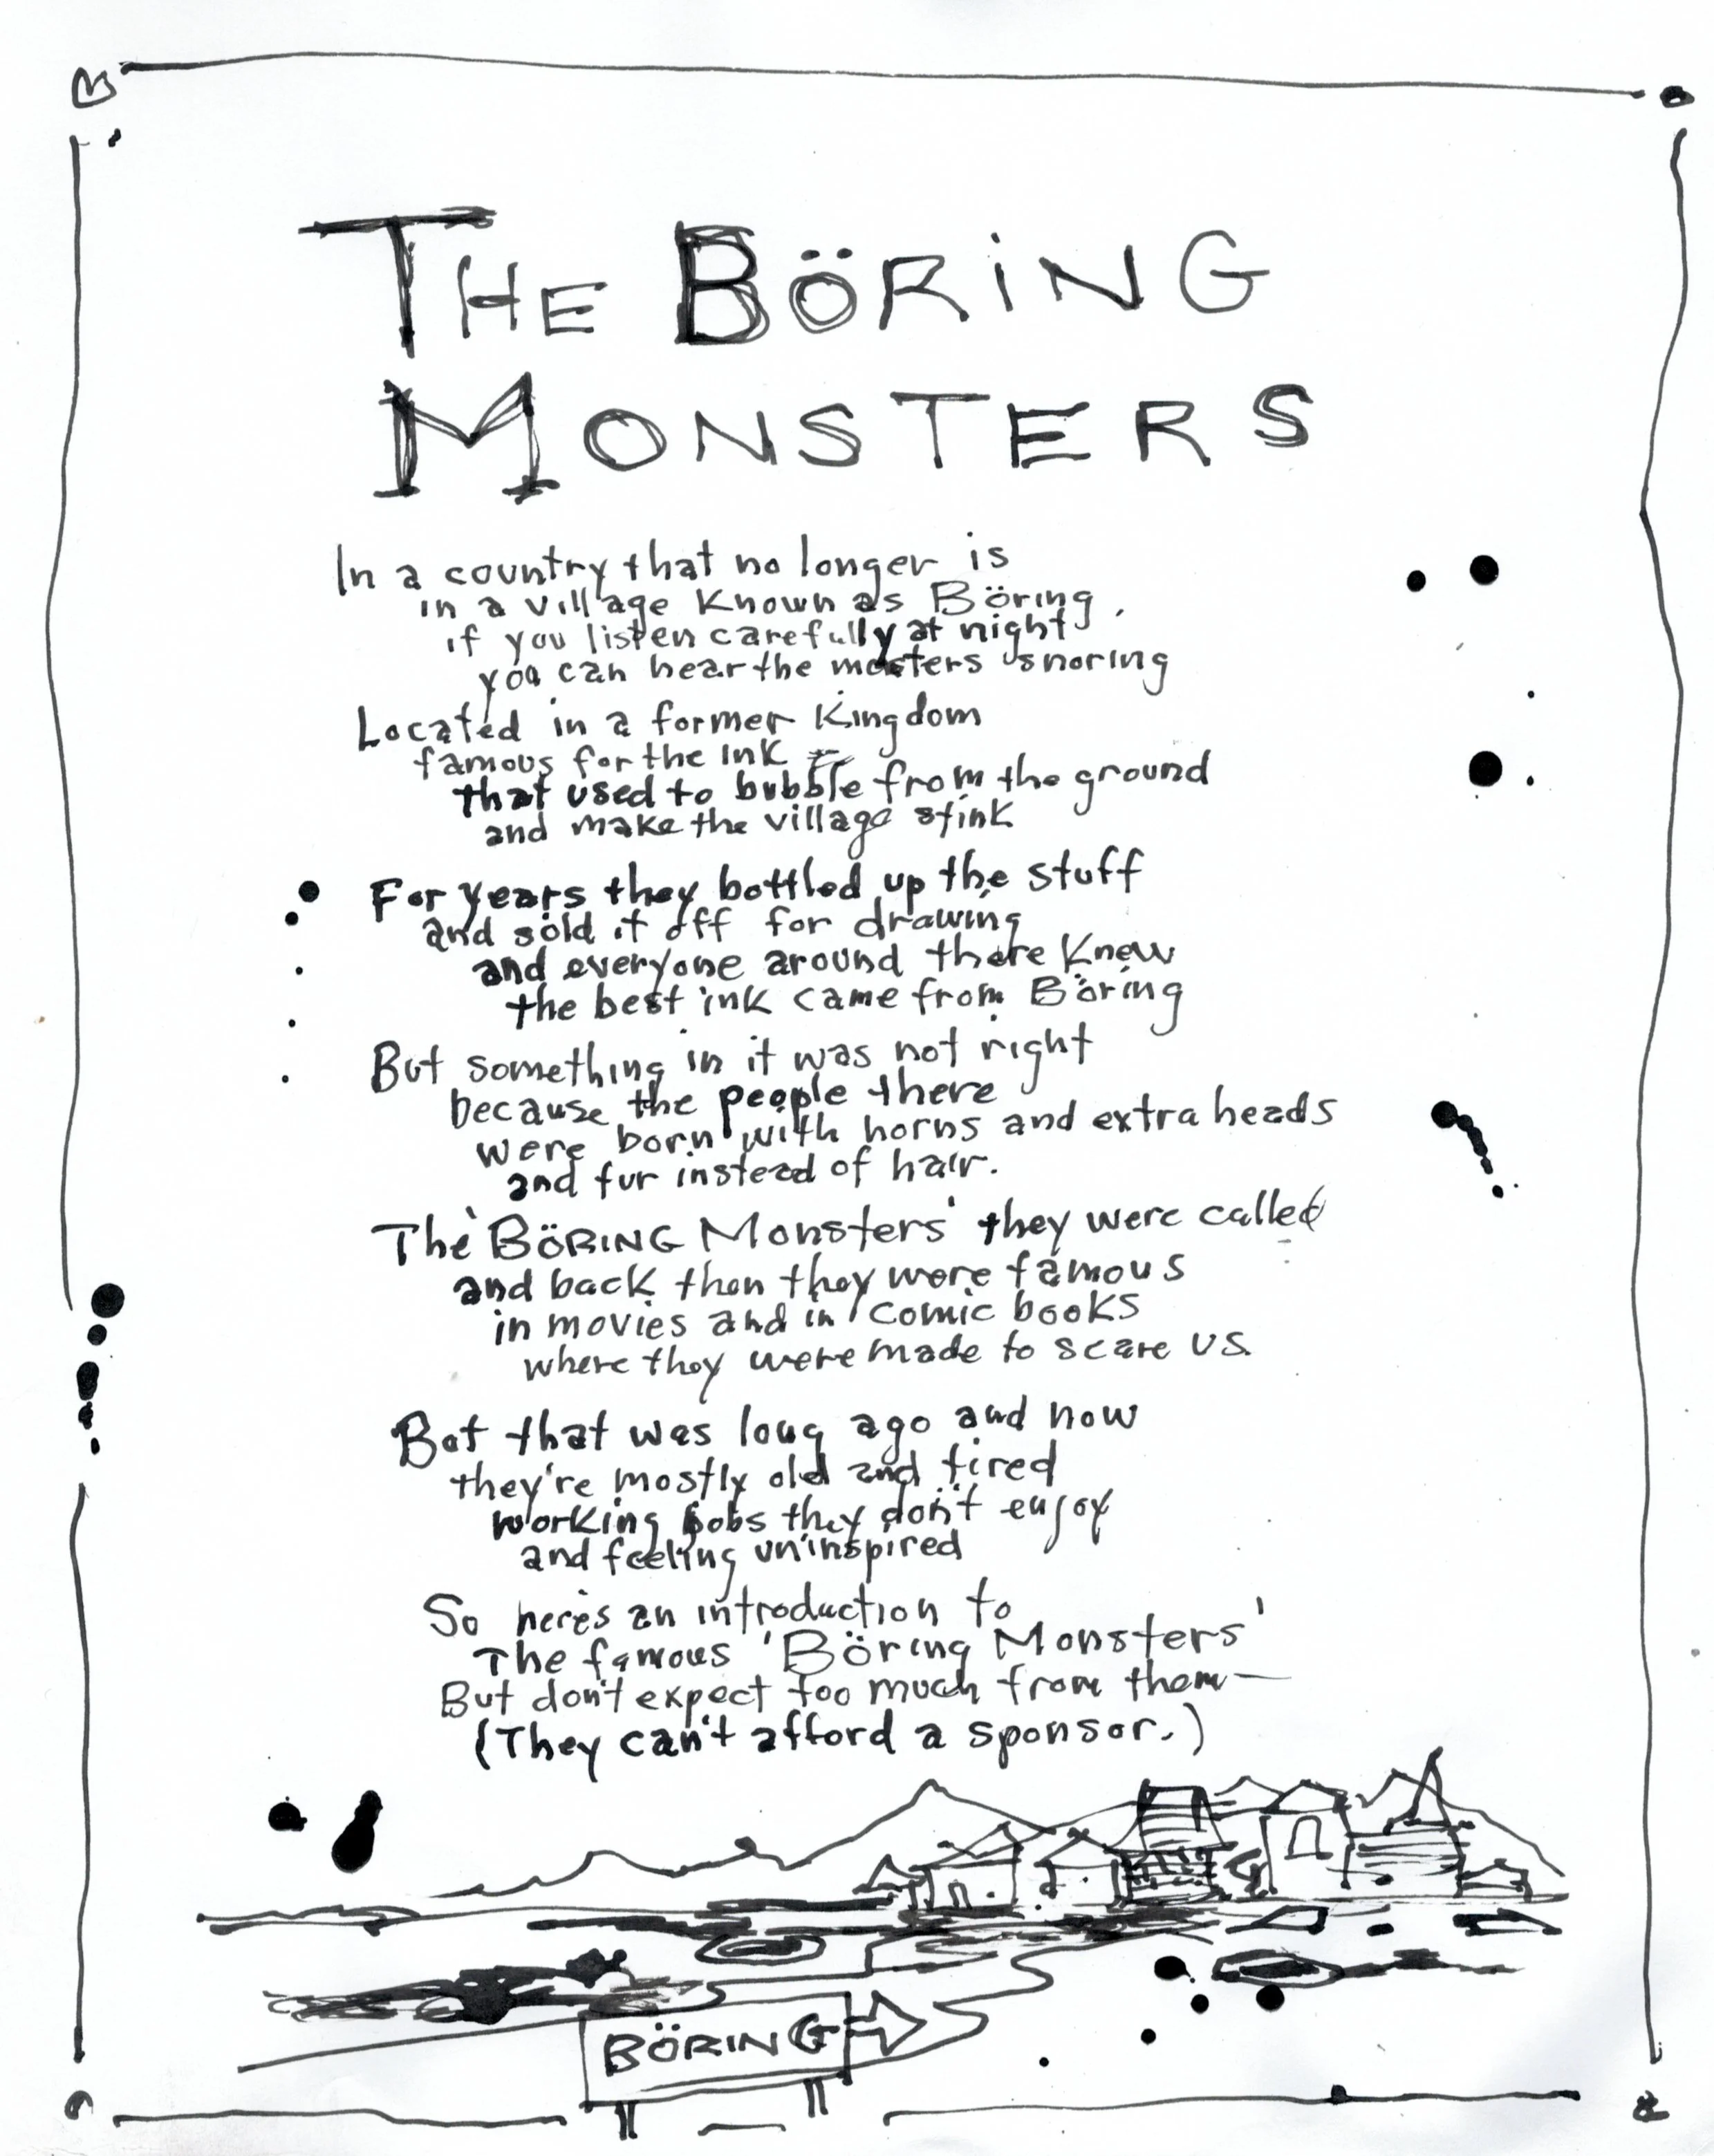 THE BÖRiNG
MONSTERS
In a country that no longer is
in a village Known as Böring,
if you listen carefully at night
you can hear the mosters snoring
Located in a former Kingdom
famous for the ink
that used to bubble from the ground
and make the village stink
For years they bottled up the stuff
and sold it off for drawing
and everyone around there Knew
the best ink came from Böring
But something in it was not right
because the people there
were born with horns and extra heads
and fur instead of hair.
The 'BÖRING Monsters' they were called
and back then they were famous
in movies and in comic books
where they were made to scare us.
But that was long ago and now
they're mostly old and tired
working jobs they don't enjoy
and feeling uninspired
So here's an introduction to
The famous 'Böring Monsters'
But don't expect too much from them—
(They can't afford a sponsor.)
BÖRING